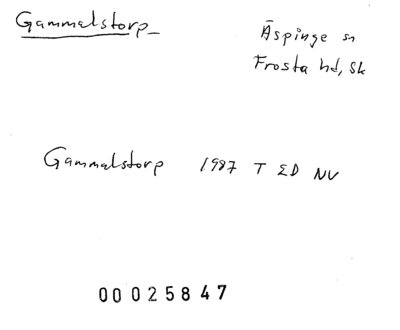 Gammalstorp
Äspinge sn
Frosta hd, Sk
Gammalstorp 1987 T ED NV
00025847